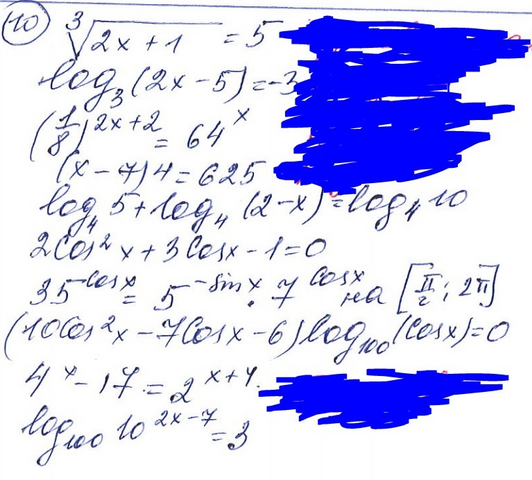 10) ∛(2x+1) = 5
log₃(2x-5) = -3
(1/8)^(2x+2) = 64^x
(x-7)4 = 625
log₄ 5 + log₄ (2-x) = log₄ 10
2cos²x + 3cosx - 1 = 0
35^(-cosx) = 5^(-sinx) · 7^(cosx) на [π/2; 2π]
(10cos²x - 7cosx - 6) log₁₀₀ (cosx) = 0
4^x - 17 = 2^(x+4).
log₁₀₀ 10^(2x-7) = 3